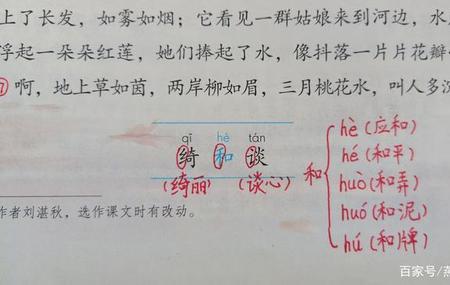 上了长发，如雾如烟；它看见一群姑娘来到河边，水
浮起一朵朵红莲，她们捧起了水，像抖落一片片花瓣
⑦啊，地上草如茵，两岸柳如眉，三月桃花水，叫人多
qǐ hè tán
绮 和 谈
(绮丽) (谈心)
和
hè (应和)
hé (和平)
huò (和弄)
huó (和泥)
hú (和牌)
作者刘湛秋，选作课文时有改动。
百家号/燕